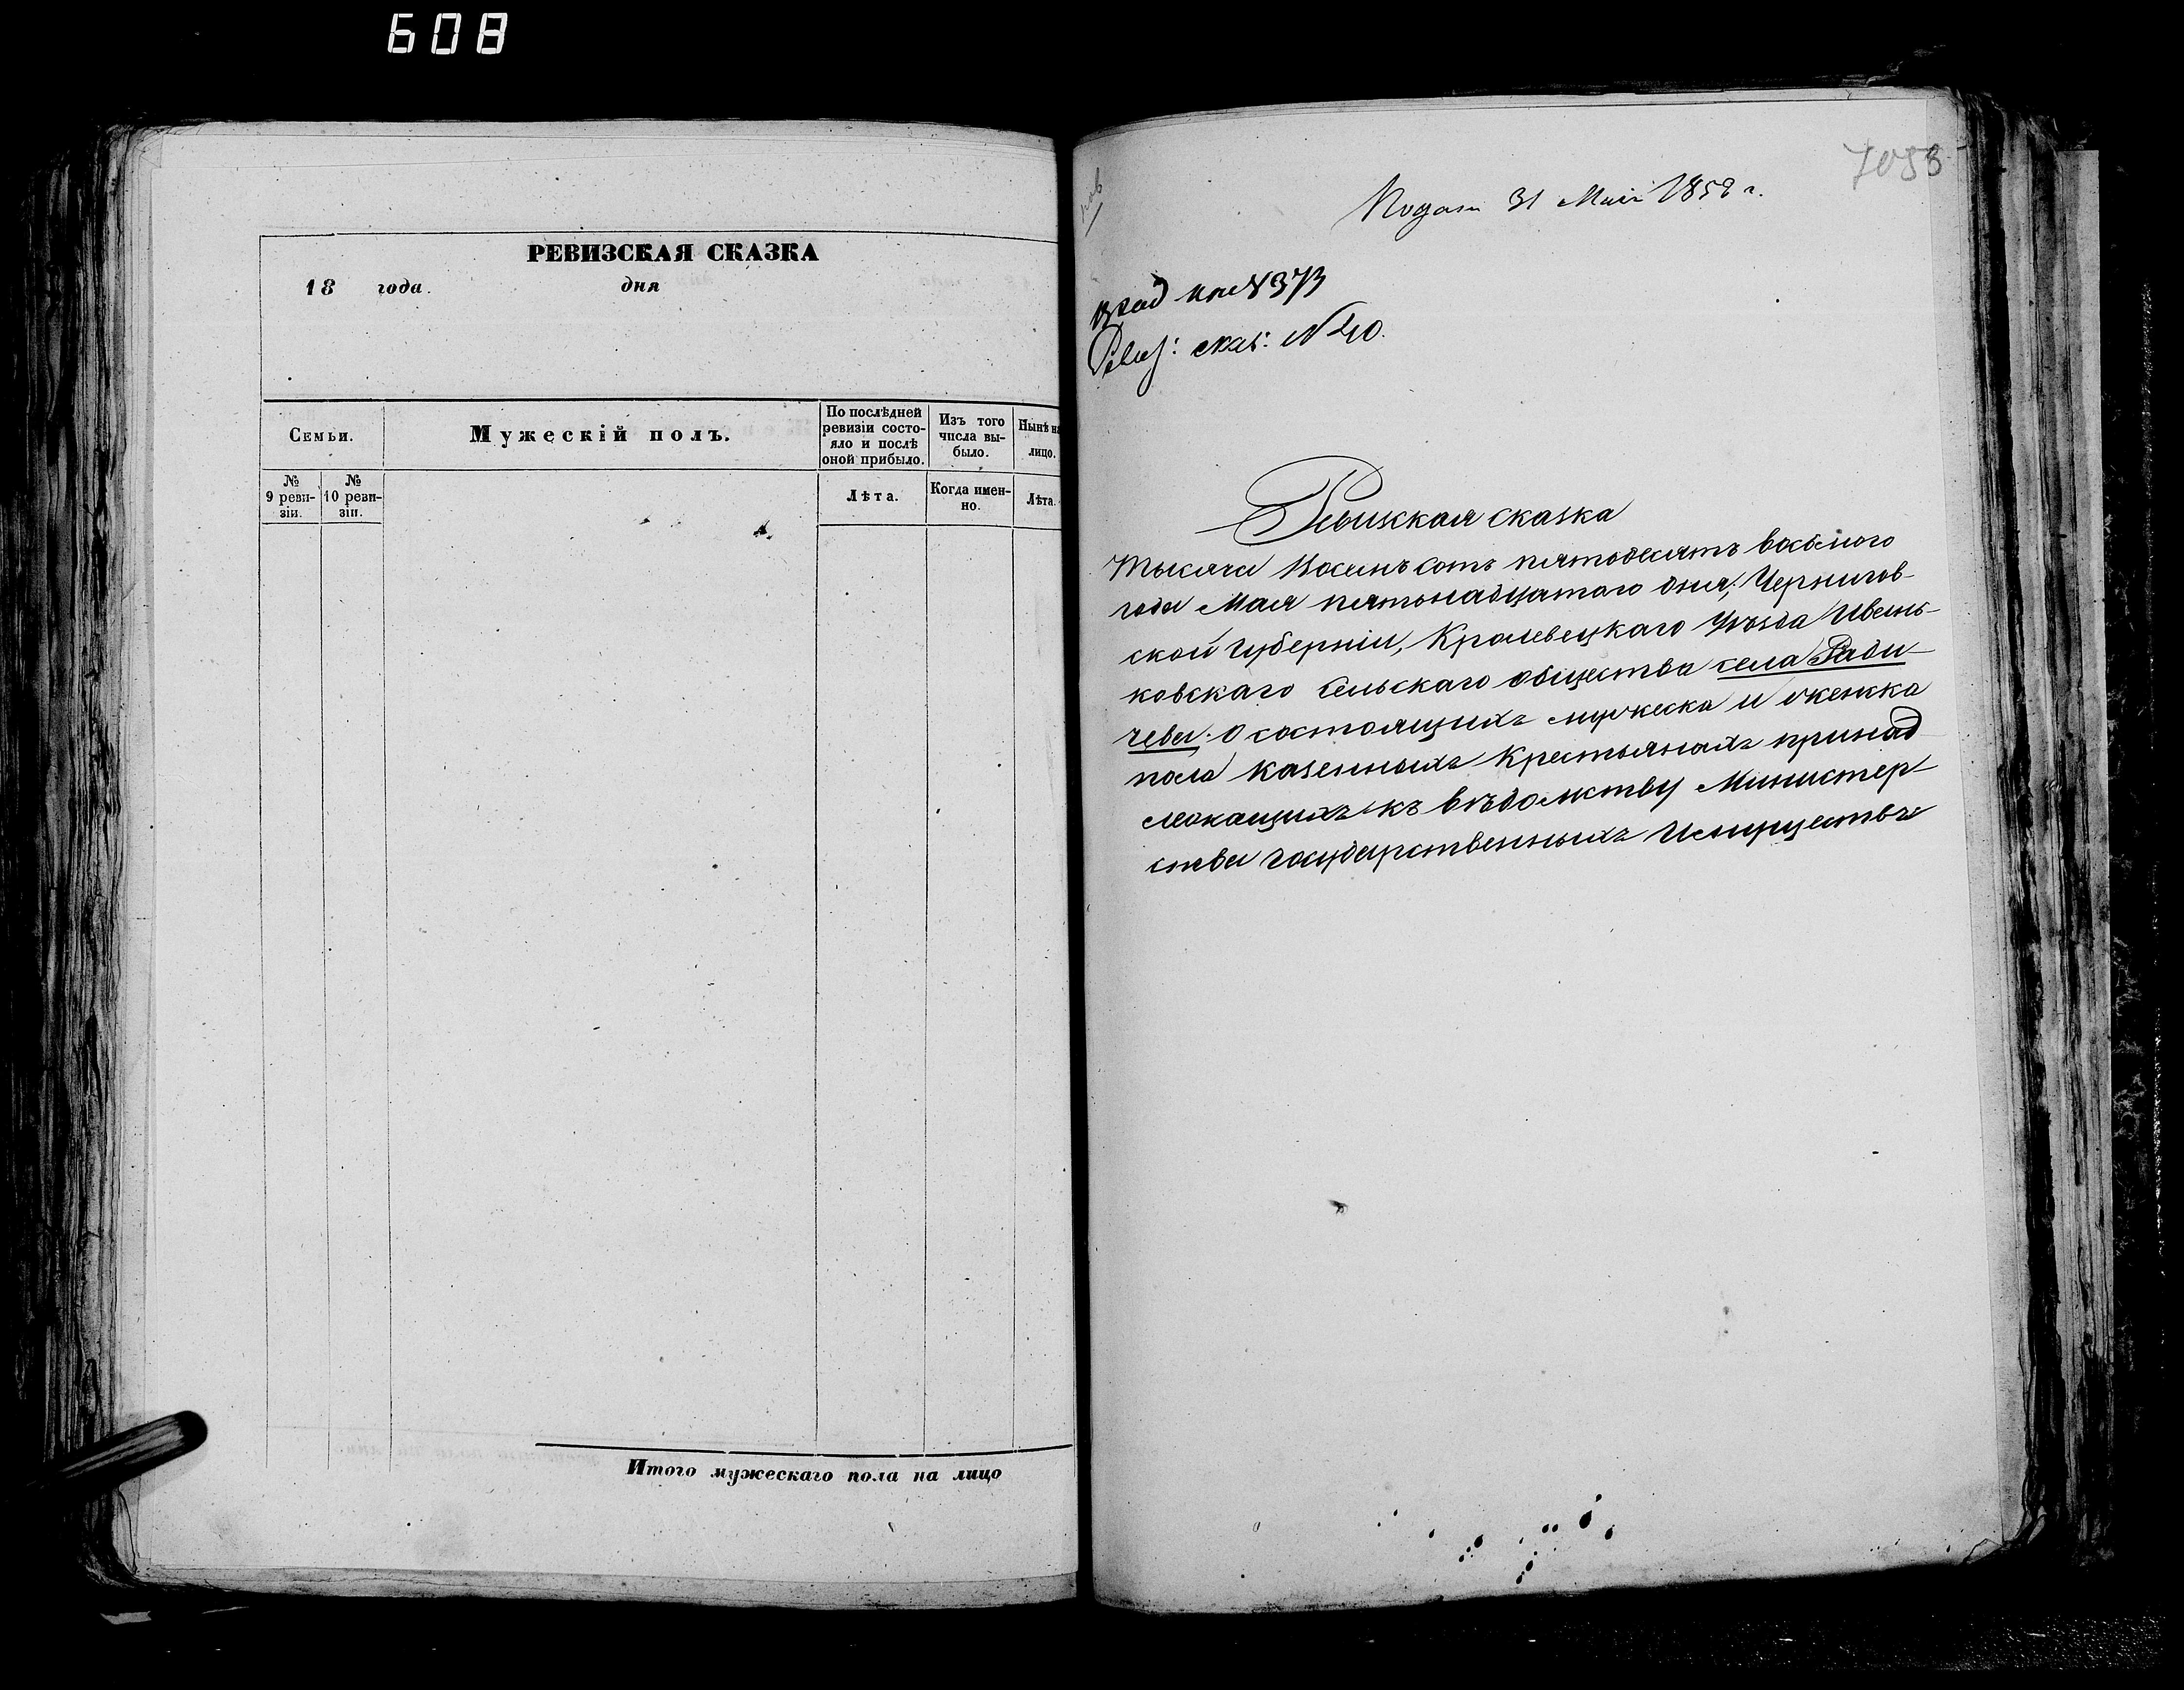 608
РЕВИЗСКАЯ СКАЗКА
18 года. дня
Семьи.
Мужескій полъ.
По послѣдней
ревизіи состо-
яло и послѣ
оной прибыло.
Изъ того
числа вы-
было.
Нынѣ на
лицо.
№
9 реви-
зіи.
№
10 реви-
зіи.
Лѣта.
Когда имен-
но.
Лѣта.
Итого мужескаго пола на лицо
7053
Подан 31 Мая 1858 г.
№ 373
Ревиз: скас: № 40.
Ревизская сказка
Тысяча Восемъ сотъ пятодесятъ восьмого
года Мая пятьнадцатаго дня, Чернигов-
ской губерніи, Кролевецкаго Уѣзда Ивань-
ковскаго сельскаго общества села Ради-
чева. О состоящихъ мужеска и женска
пола казенныхъ крестьянахъ принад
лежащихъ къ вѣдомству Министер-
ства государственныхъ Имуществъ